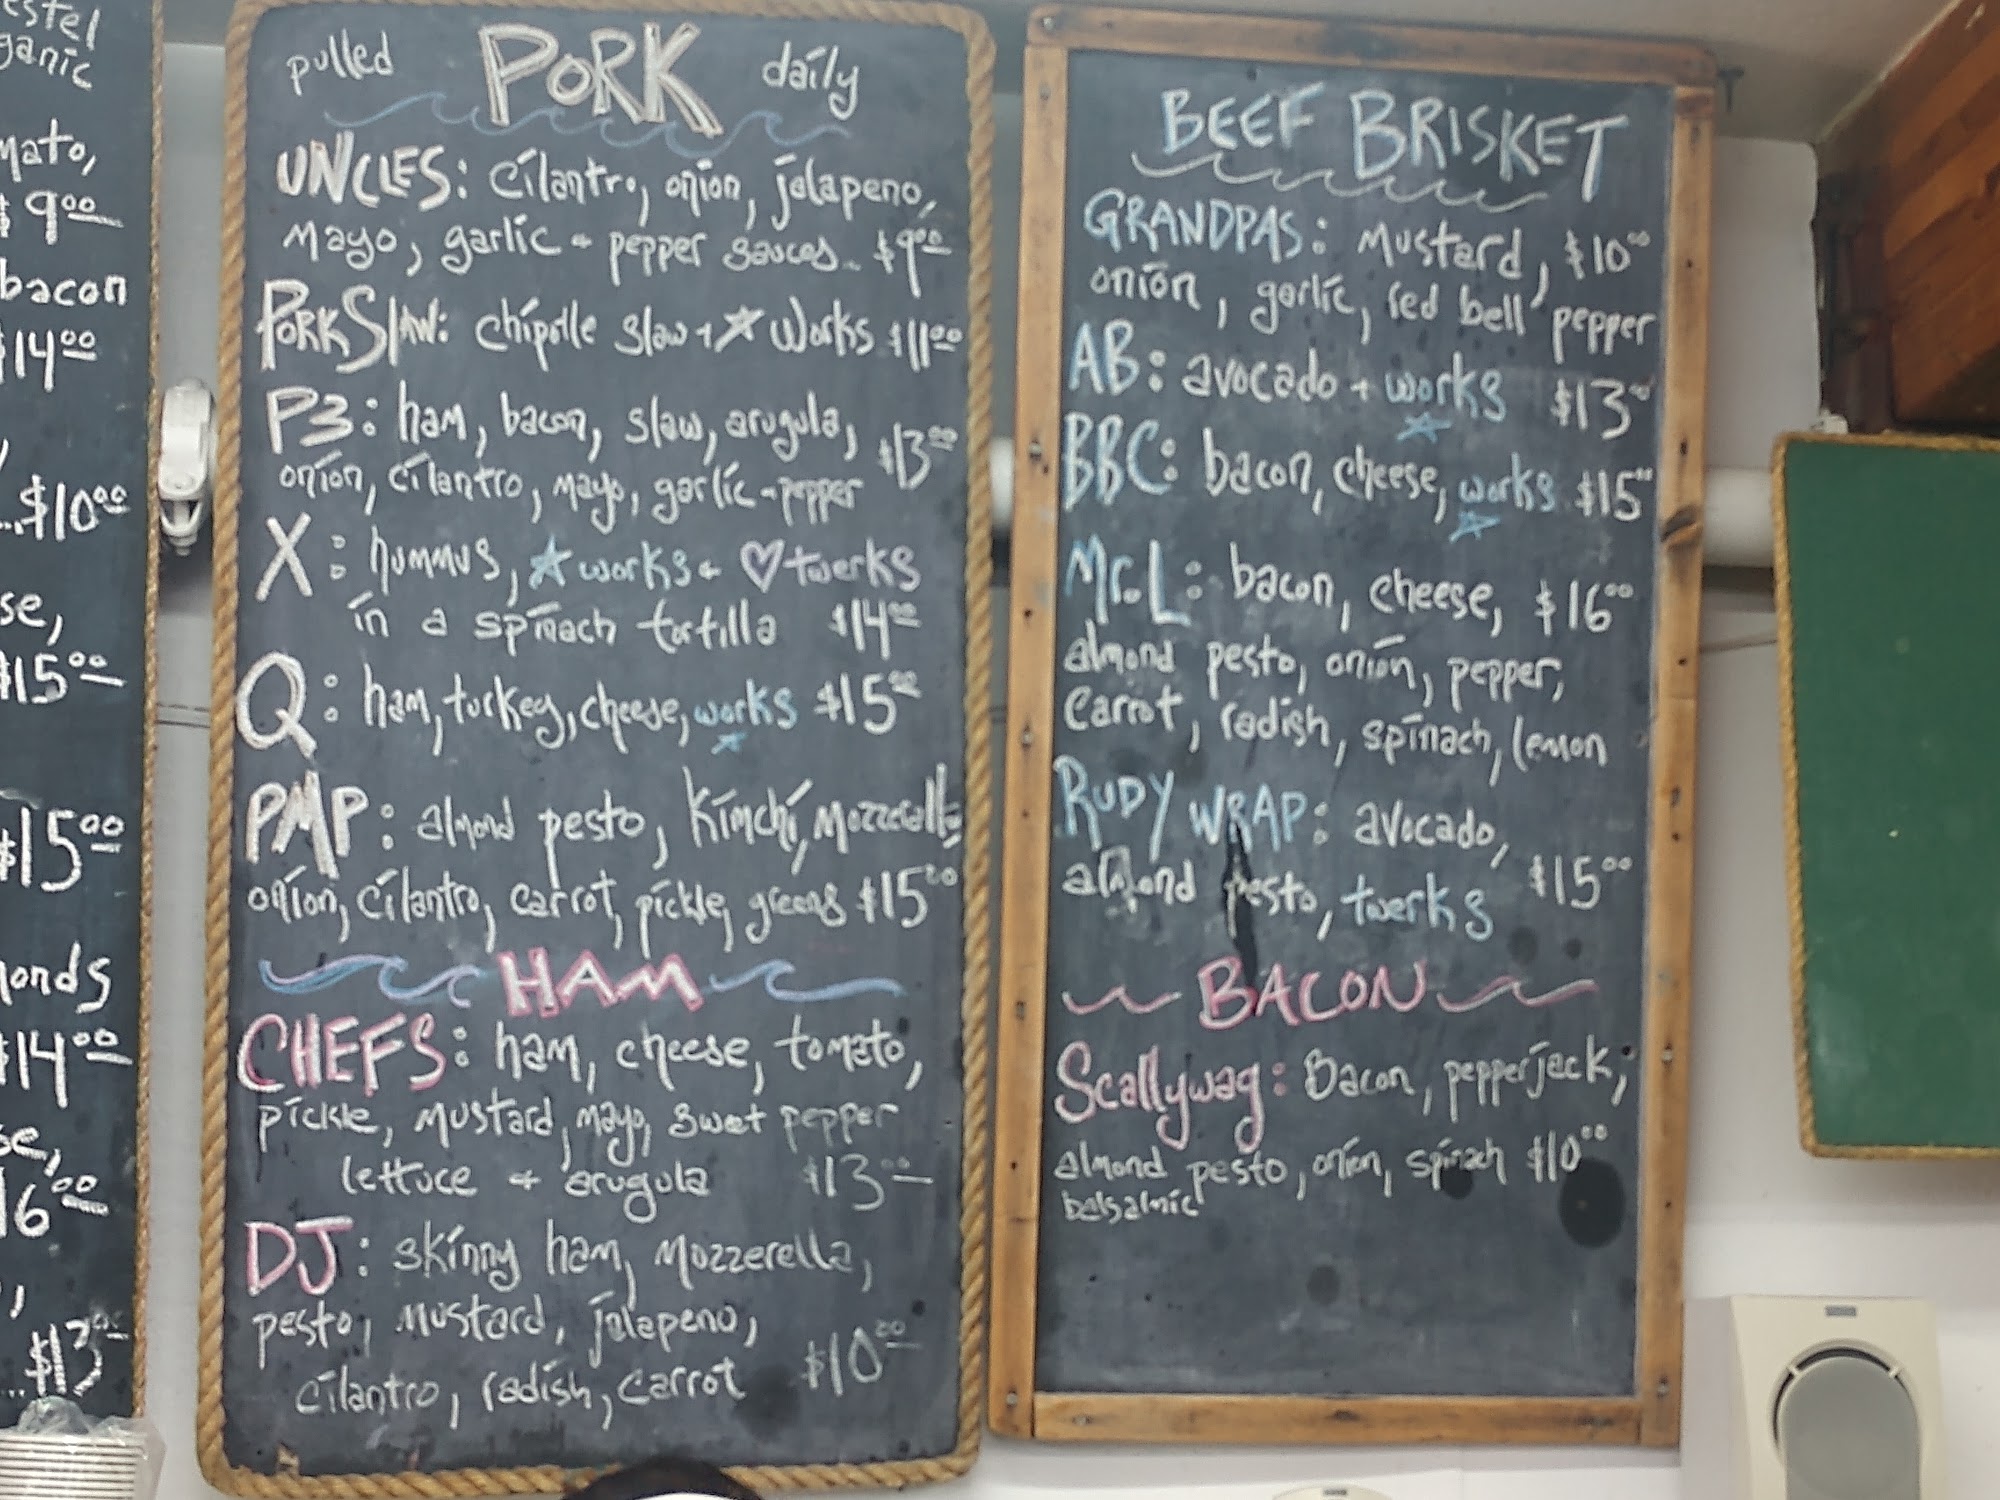 estel
ganic
mato,
$9.00
bacon
$14.00
$10.00
se,
$15.00
$15.00
onds
$14.00
se,
16.00
$13
pulled PORK daily
UNCLES: cilantro, onion, jalapeno,
Mayo, garlic + pepper sauces.. $9.00
PORK SLAW: chipotle slaw + ☆ Works $11.00
P3: ham, bacon, slaw, arugula,
onion, cilantro, mayo, garlic-pepper $13.00
X: hummus, ☆ works + ♡ twerks
in a spinach tortilla $14.00
Q: ham, turkey, cheese, works $15.00
☆
PMP: almond pesto, Kimchi, Mozzerella
onion, cilantro, carrot, pickle, greens $15.00
HAM
CHEFS: ham, cheese, tomato,
pickle, mustard, mayo, swet pepper
lettuce + arugula $13.00
DJ: skinny ham, mozzerella,
pesto, mustard, jalapeno,
cilantro, radish, carrot $10.00
BEEF BRISKET
GRANDPAS: Mustard, $10.00
onion, garlic, red bell pepper
AB: avocado + works $13.00
☆
BBC: bacon, cheese, works $15.00
☆
Mr. L: bacon, cheese, $16.00
almond pesto, onion, pepper,
carrot, radish, spinach, lemon
RUDY WRAP: avocado,
almond pesto, twerks $15.00
BACON
Scallywag: Bacon, pepperjack,
almond pesto, onion, spinach $10.00
belsamic